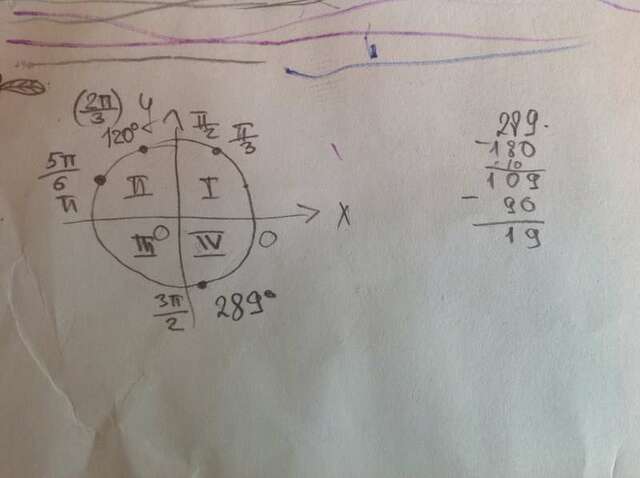 (2π/3) y π/2 π/3
120°
5π/6 II I
π x
III O IV O
3π/2 289°
289.
-180
10
109
- 90
19